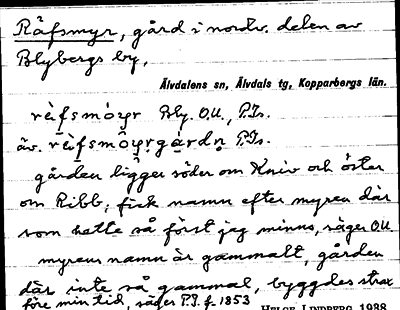 Räfsmyr, gård i nordv. delen av
Blybergs by,
Älvdalens sn, Älvdals tg, Kopparbergs län.
rèfsmöyr Bly. O.U., P.Is.
äv. rèfsmöyrgàrdn P.Is.
gården ligger söder om Kniv och öster
om Ribb; fick namn efter myren där
som hette så först jag minns, säger O.U.
myrens namn är gammalt, gården
där inte så gammal, byggdes strax
före min tid, säger P.I. f. 1853
HELGE LINDBERG 1938